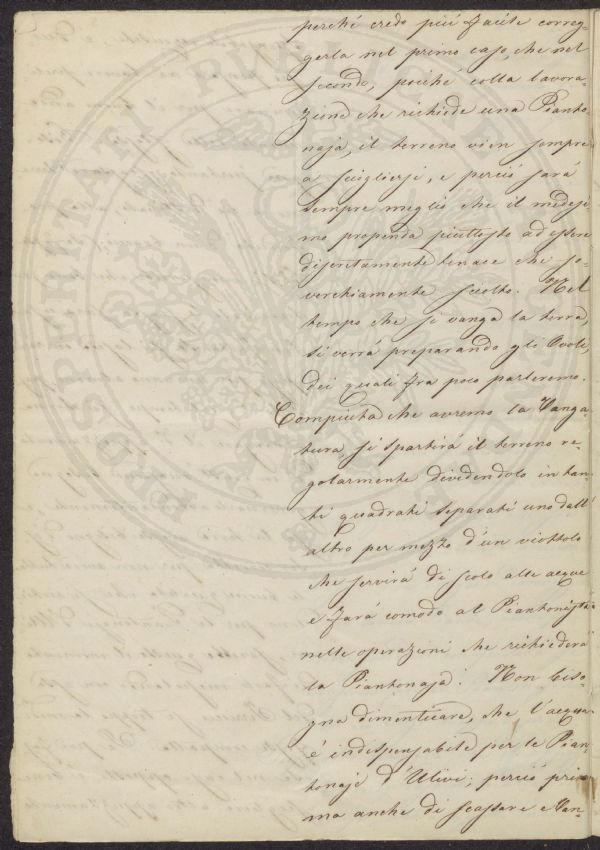 perché credo più facile correg-
gerla nel primo caso, che nel
secondo, poiché colla lavora-
zione che richiede una Pianto
naja, il terreno vien sempre
a sciogliersi, e perciò sarà
sempre meglio che il medesi
mo propenda piuttosto ad essere
discretamente tenace che so-
verchiamente sciolto. Nel
tempo che si vanga la terra,
si verrà preparando gli Ovoli,
dei quali fra poco parleremo.
Compiuta che avremo la Vanga
tura, si spartirà il terreno re-
golarmente dividendolo in tan-
ti quadrati separati uno dall'
altro per mezzo d'un viottolo
che servirà di scolo alle acque
e farà comodo al Piantonista
nelle operazioni che richiederà
la Piantonaja. Non biso-
gna dimenticare, che l'acqua
é indispensabile per le Pian
tonaje d'Ulivi; perciò pri
ma anche di scassare e Van-